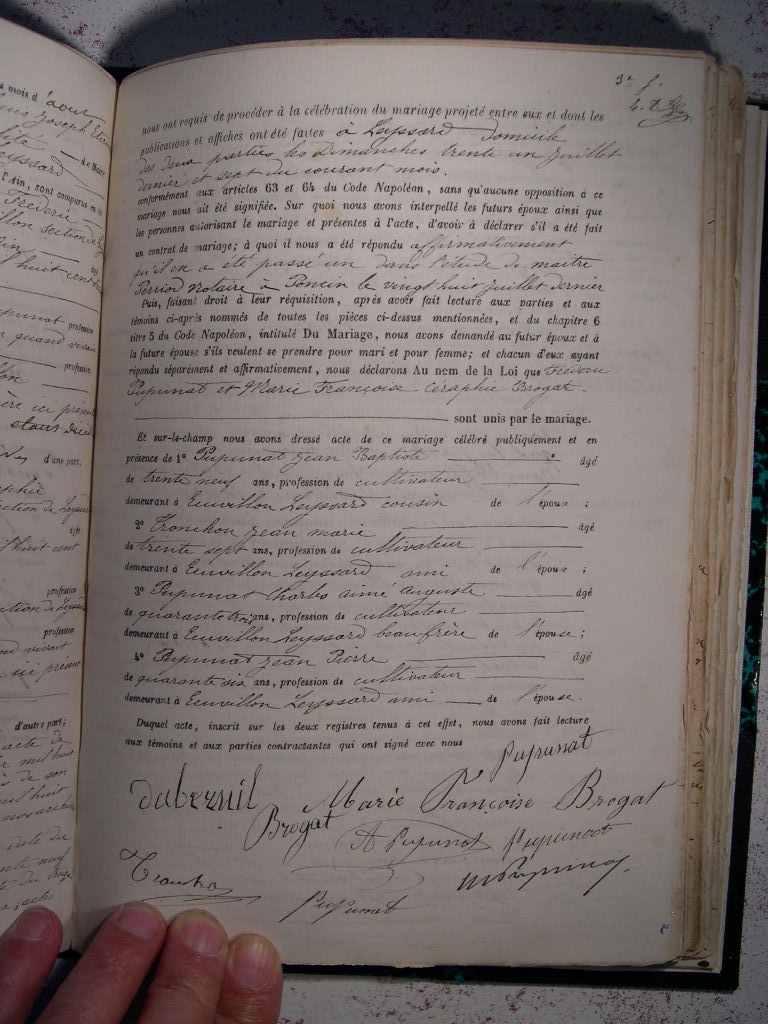 u mois d'août
uis Joseph
de Maire
eyssard
l'Ain, sont comparus en
Frédéric
llon section de
âgé
l huit cent
upunat profession
n quand vivait
profession
llon
ère ici présent
d'une part;
raphie
ction de Leyssard
âgé
l huit cent
profession
ction de Leyssard
profession
nd vivant
ici présent
d'autre part;
acte de
r mil huit
de son
mil huit
3e f.
nous ont requis de procéder à la célébration du mariage projeté entre eux et dont les
publications et affiches ont été faites à Leyssard domicile
des deux parties les Dimanches trente un juillet
dernier et sept du courant mois.
conformément aux articles 63 et 64 du Code Napoléon, sans qu'aucune opposition à ce
mariage nous ait été signifiée. Sur quoi nous avons interpellé les futurs époux ainsi que
les personnes autorisant le mariage et présentes à l'acte, d'avoir à déclarer s'il a été fait
un contrat de mariage; à quoi il nous a été répondu affirmativement
qu'il en a été passé un dans l'étude de maitre
Perriod notaire à Poncin le vingt huit juillet dernier
Puis, faisant droit à leur réquisition, après avoir fait lecture aux parties et aux
témoins ci-après nommés de toutes les pièces ci-dessus mentionnées, et du chapitre 6
titre 5 du Code Napoléon, intitulé Du Mariage, nous avons demandé au futur époux et à
la future épouse s'ils veulent se prendre pour mari et pour femme; et chacun d'eux ayant
répondu séparément et affirmativement, nous déclarons Au nem de la Loi que Fréderic
Pupunat et Marie Françoise Ceraphie Brogat.
sont unis par le mariage.
Et sur-le-champ nous avons dressé acte de ce mariage célébré publiquement et en
présence de 1° Pupunat Jean Baptiste âgé
de trente neuf ans, profession de cultivateur
demeurant à Euvillon Leyssard cousin de l'époux;
2° Tronchon Jean marie âgé
de trente sept ans, profession de cultivateur
demeurant à Euvillon Leyssard ami de l'époux;
3° Pupunat Charles aimé auguste âgé
de quarante trois ans, profession de cultivateur
demeurant à Euvillon Leyssard beaufrère de l'épouse;
4° Pupunat Jean Pierre âgé
de quarante six ans, profession de cultivateur
demeurant à Euvillon Leyssard ami de l'épouse.
Duquel acte, inscrit sur les deux registres tenus à cet effet, nous avons fait lecture
aux témoins et aux parties contractantes qui ont signé avec nous
Pupunat
dubreuil Marie Françoise Brogat
Brogat A Pupunat Pupunat
Tronchon Pupunat